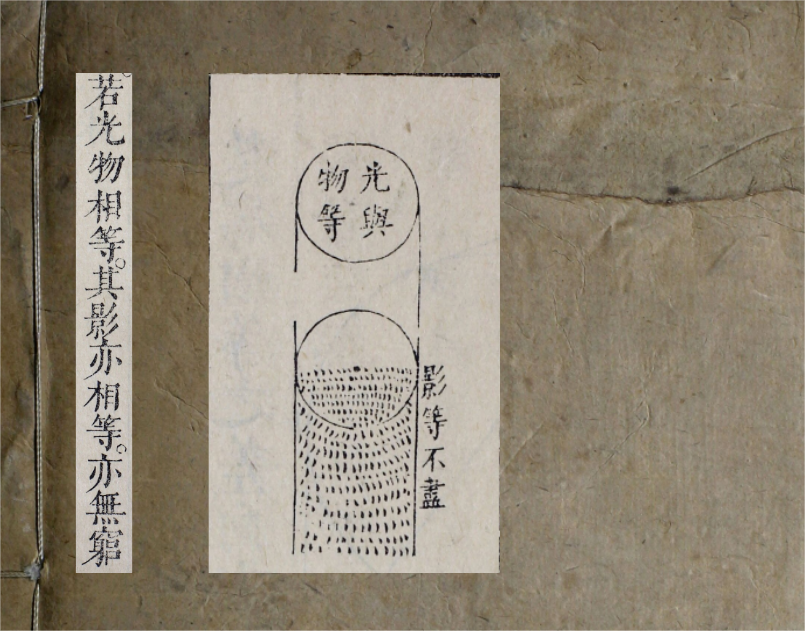 若光物相等。其影亦相等。亦無窮
光與
物等
影等不盡